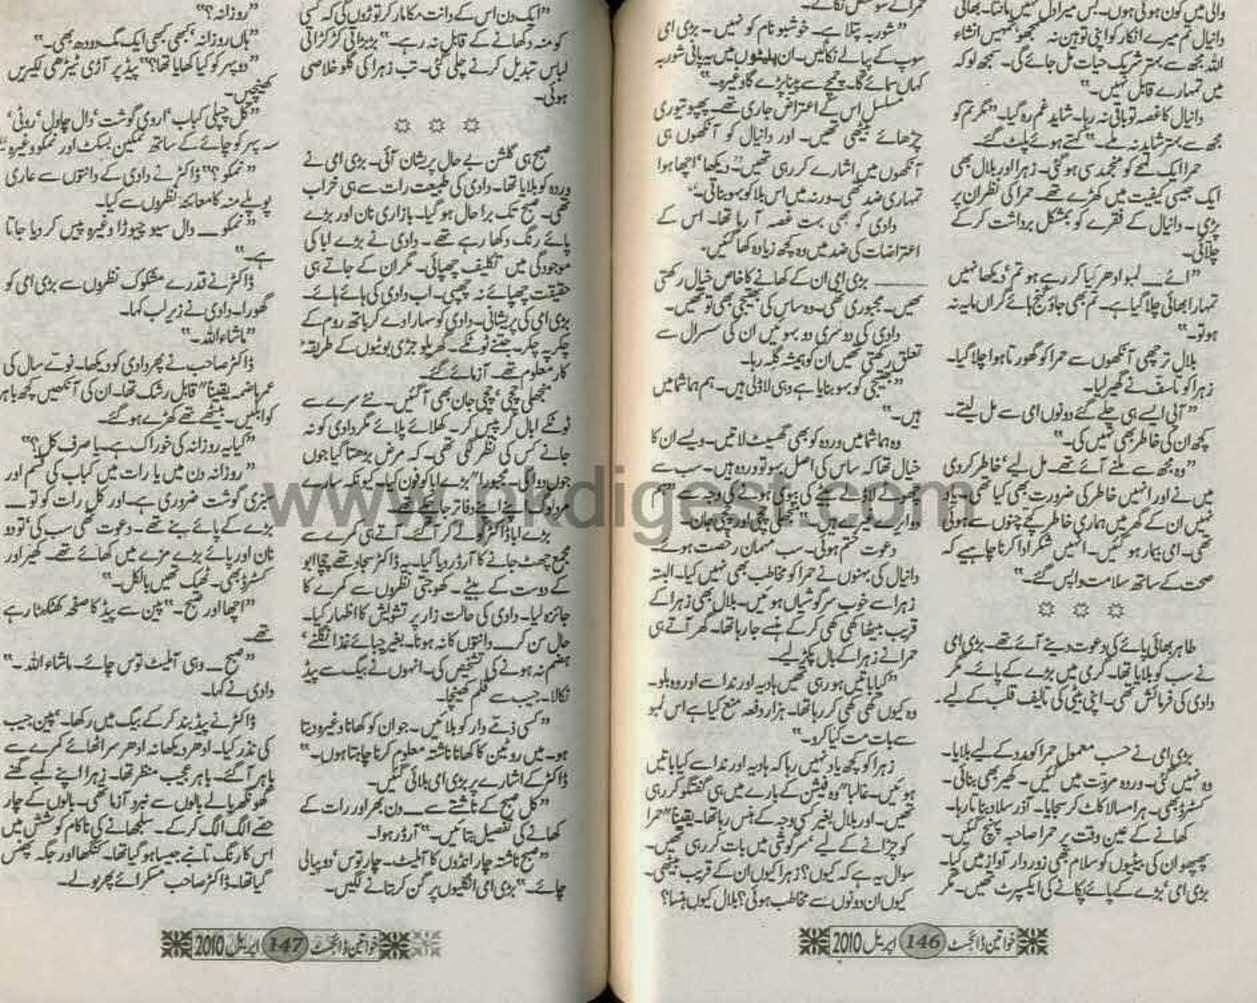 والی میں کون ہوتی ہوں۔ بس میرا دل نہیں مانتا۔ بھائی
دانیال تم میرے انکار کو اپنی توہین نہ سمجھو، تمہیں انشاء
اللہ مجھ سے بہتر شریک حیات مل جائے گی۔ سمجھ لو کہ
میں تمہارے قابل نہیں۔"
دانیال کا غصہ تو باقی نہ رہا۔ شاید غم رہ گیا۔ "مگر تم کو
مجھ سے بہتر شاید نہ ملے۔" کہتے ہوئے پلٹ گئے۔
حمرا ایک لمحے کو منجمد سی ہو گئی۔ زہرا اور بلال بھی
ایک جیسی کیفیت میں کھڑے تھے۔ حمرا کی نظر ان پر
پڑی۔ دانیال کے فقرے کو بمشکل برداشت کر کے
چلائی۔
"اے۔ لمبو ادھر کیا کر رہے ہو تم، دیکھا نہیں
تمہارا بھائی چلا گیا ہے۔ تم بھی جاؤ گنج ہائے گراں مایہ نہ
ہو تو۔"
بلال ترچھی آنکھوں سے حمرا کو گھورتا ہوا چلا گیا۔
زہرا کو تاسف نے گھیر لیا۔
"آپی ایسے ہی چلے گئے دونوں امی سے مل لیتے۔
کچھ ان کی خاطر بھی نہیں کی۔"
"وہ مجھ سے ملنے آئے تھے۔ مل لیے، خاطر کر دی
میں نے اور انہیں خاطر کی ضرورت بھی کیا تھی۔ یاد
نہیں ان کے گھر میں ہماری خاطر کچے چنوں سے ہوئی
تھی۔ امی بیمار ہو گئیں۔ انہیں شکر ادا کرنا چاہیے کہ
صحت کے ساتھ سلامت واپس گئے۔"
طاہر بھائی پائے کی دعوت دینے آئے تھے۔ بڑی امی
نے سب کو بلایا تھا۔ گرمی میں بڑے کے پائے۔ مگر
دادی کی فرمائش تھی۔ اپنی بیٹی کی تالیف قلب کے لیے۔
بڑی امی نے حسب معمول حمرا کو مدد کے لیے بلایا۔
وہ نہیں گئی۔ وردہ مروت میں گئیں۔ کھیر بھی بنائی۔
کسٹرڈ بھی۔ ہرا مسالا کاٹ کر سجایا۔ آذر سلاد بناتا رہا۔
کھانے کے عین وقت پر حمرا صاحبہ پہنچ گئیں۔
پھپھو ان کی بیٹیوں کو سلام بھی زوردار آواز میں کیا۔
بڑی امی، بڑے کے پائے پکانے کی ایکسپرٹ تھیں۔ مگر
"شوربہ پتلا ہے۔ خوشبو نام کو نہیں۔ بڑی امی
سوپ کے پیالے نکالیں۔ ان پلیٹوں میں یہ پانی شوربہ
کہاں سمائے گا۔ چمچے سے پینا پڑے گا وغیرہ۔"
مسلسل اس کے اعتراض جاری تھے۔ پھپو تیوری
چڑھائے بیٹھی تھیں۔ اور دانیال کو آنکھوں ہی
آنکھوں میں اشارے کر رہی تھیں۔ "دیکھا، اچھا ہوا
تمہاری ضد تھی۔ ورنہ میں اس بلا کو بہو بناتی۔"
دادی کو بھی بہت غصہ آ رہا تھا۔ اس کے
اعتراضات کی ضد میں وہ کچھ زیادہ کھا گئیں۔
بڑی امی ان کے کھانے کا خاص خیال رکھتی
تھیں۔ مجبوری تھی۔ وہ ساس کی بھتیجی بھی تو تھیں۔
دادی کی دوسری دو بہوئیں ان کی سسرال سے
تعلق رکھتی تھیں ان کو ہمیشہ گلہ رہا۔
"بھتیجی کو بہو بنایا ہے وہی لاڈلی ہیں۔ ہم ہما شما میں
ہیں۔"
وہ ہما شما میں وردہ کو بھی گھسیٹ لاتیں۔ ویسے ان کا
خیال تھا کہ ساس کی اصل بہو تو وردہ ہیں۔ سب سے
چھوٹے لاڈلے بیٹے کی بیوی ہونے کی وجہ سے "ہم
دو ایرے غیرے ہیں۔" منجھلی چچی اور چچی جان۔
دعوت ختم ہوئی۔ سب مہمان رخصت ہوئے۔
دانیال کی بہنوں نے حمرا کو مخاطب بھی نہیں کیا۔ البتہ
زہرا سے خوب سرگوشیاں ہوئیں۔ بلال بھی زہرا کے
قریب بیٹھا کھی کھی کر کے ہنسے جا رہا تھا۔ گھر آتے ہی
حمرا نے زہرا کے بال پکڑ لیے۔
"کیا باتیں ہو رہی تھیں ہادیہ اور ندا سے اور وہ بلو۔
وہ کیوں کھی کھی کر رہا تھا۔ ہزار دفعہ منع کیا ہے اس لمبو
سے بات مت کیا کرو۔"
زہرا کو کچھ یاد نہیں رہا کہ ہادیہ اور ندا سے کیا باتیں
ہوئیں۔ غالباً "وہ فیشن کے بارے میں ہی گفتگو کر رہی
تھیں۔ اور بلال بغیر کسی وجہ کے ہنس رہا تھا۔ یقیناً "حمرا
کو چڑانے کے لیے، سرگوشی میں بات کر رہی تھیں۔
سوال یہ ہے کہ کیوں؟ زہرا کیوں ان کے قریب بیٹھی۔
کیوں ان دونوں سے مخاطب ہوئی؟ بلال کیوں ہنسا؟
خواتین ڈائجسٹ 146 اپریل 2010
"ایک دن اس کے دانت مکا مار کر توڑوں گی کہ کسی
کو منہ دکھانے کے قابل نہ رہے۔" بڑبڑاتی کڑکڑاتی
لباس تبدیل کرنے چلی گئی۔ تب زہرا کی گلو خلاصی
ہوئی۔
صبح ہی گلشن بے حال پریشان آئی۔ بڑی امی نے
وردہ کو بلایا تھا۔ دادی کی طبیعت رات سے ہی خراب
تھی۔ صبح تک برا حال ہو گیا۔ بازاری نان اور بڑے
پائے رنگ دکھا رہے تھے۔ دادی نے بڑے ابا کی
موجودگی میں تکلیف چھپائی۔ مگر ان کے جاتے ہی
حقیقت چھپائے نہ چھپی۔ اب دادی کی ہائے ہائے۔
بڑی امی کی پریشانی۔ دادی کو سہارا دے کر باتھ روم کے
چکر پہ چکر۔ جتنے ٹوٹکے۔ گھریلو جڑی بوٹیوں کے طریقہ
کار معلوم تھے۔ آزمائے گئے۔
منجھلی چچی، چچی جان بھی آ گئیں۔ نئے سرے سے
ٹوٹکے ابال کر پیس کر۔ کھلائے پلائے مگر دادی کو نہ
جانے کس کی نظر لگی تھی۔ کہ مرض بڑھتا گیا جوں
جوں دوا کی۔ مجبوراً "بڑے ابا کو فون کیا۔ کیونکہ سارے
مرد لوگ اپنے اپنے دفاتر جا چکے تھے۔
بڑے ابا ڈاکٹر کو لے کر آئے۔ آتے ہی کمرے سے
مجمع چھٹ جانے کا آرڈر دیا گیا۔ یہ ڈاکٹر سجاد تھے چچا ابو
کے دوست کے بیٹے۔ کھوجتی نظروں سے کمرے کا
جائزہ لیا۔ دادی کی حالت زار پر تشویش کا اظہار کیا۔
حال سن کر۔ دانتوں کا نہ ہونا۔ بغیر چبائے غذا نگلنے،
ہضم نہ ہونے کی تشخیص کی۔ انہوں نے بیگ سے پیڈ
نکالا۔ جیب سے قلم کھینچا۔
"کسی ذمے دار کو بلائیں۔ جو ان کو کھانا وغیرہ دیتا
ہو۔ میں روٹین کا کھانا ناشتہ معلوم کرنا چاہتا ہوں۔"
ڈاکٹر کے اشارے پر بڑی امی بلائی گئیں۔
"کل صبح کے ناشتے سے۔ دن بھر اور رات کے
کھانے کی تفصیل بتائیں۔" آرڈر ہوا۔
"صبح ناشتہ چار انڈوں کا آملیٹ۔ چار توس، دو پیالی
چائے۔" بڑی امی انگلیوں پر گن کر بتانے لگیں۔
"روزانہ؟"
"ہاں روزانہ، کبھی کبھی ایک مگ دودھ بھی۔"
"دوپہر کو کیا کھایا تھا؟" پیڈ پر آڑی ٹیڑھی لکیریں
کھینچیں۔
"کل چپلی کباب، اروی گوشت، دال چاول، روٹی،
سہ پہر کو چائے کے ساتھ نمکین بسکٹ اور نمکو وغیرہ۔"
"نمکو؟" ڈاکٹر نے دادی کے دانتوں سے عاری
پوپلے منہ کا معائنہ نظروں سے کیا۔
"نمکو۔ دال سیو چیوڑا وغیرہ پیس کر دیا جاتا
ہے۔"
ڈاکٹر نے قدرے مشکوک نظروں سے بڑی امی کو
گھورا۔ دادی نے زیر لب کہا۔
"ماشاء اللہ۔"
ڈاکٹر صاحب نے پھر دادی کو دیکھا۔ نوے سال کی
عمر ہاضمہ یقیناً "قابل رشک تھا۔ ان کی آنکھیں کچھ باہر
کو ابلیں۔ بیٹھے تھے کھڑے ہو گئے۔
"کیا یہ روزانہ کی خوراک ہے۔ یا صرف کل؟"
"روزانہ دن میں یا رات میں کباب کی قسم اور
سبزی گوشت ضروری ہے۔ اور کل رات کو تو۔
بڑے کے پائے بنے تھے۔ دعوت تھی سب کی، تو دو
نان اور پائے بڑے مزے میں کھائے تھے۔ کھیر اور
کسٹرڈ بھی۔ ٹھیک تھیں بالکل۔"
"اچھا اور صبح۔" پین سے پیڈ کا صفحہ کھٹکھٹا رہے
تھے۔
"صبح۔ وہی آملیٹ توس چائے۔ ماشاء اللہ۔"
دادی نے کہا۔
ڈاکٹر نے پیڈ بند کر کے بیگ میں رکھا۔ پین جیب
کی نذر کیا۔ ادھر دیکھا نہ ادھر سر اٹھائے کمرے سے
باہر آ گئے۔ باہر عجیب منظر تھا۔ زہرا اپنے لمبے گھنے
گھونگھریالے بالوں سے نبرد آزما تھی۔ بالوں کے چار
حصے الگ الگ کر کے۔ سلجھانے کی ناکام کوشش میں
اس کا رنگ تانبے جیسا ہو گیا تھا۔ کنگھا اور جگہ پھنس
گیا تھا۔ ڈاکٹر صاحب مسکرائے پھر بولے۔
خواتین ڈائجسٹ 147 اپریل 2010
www.pkdigest.com